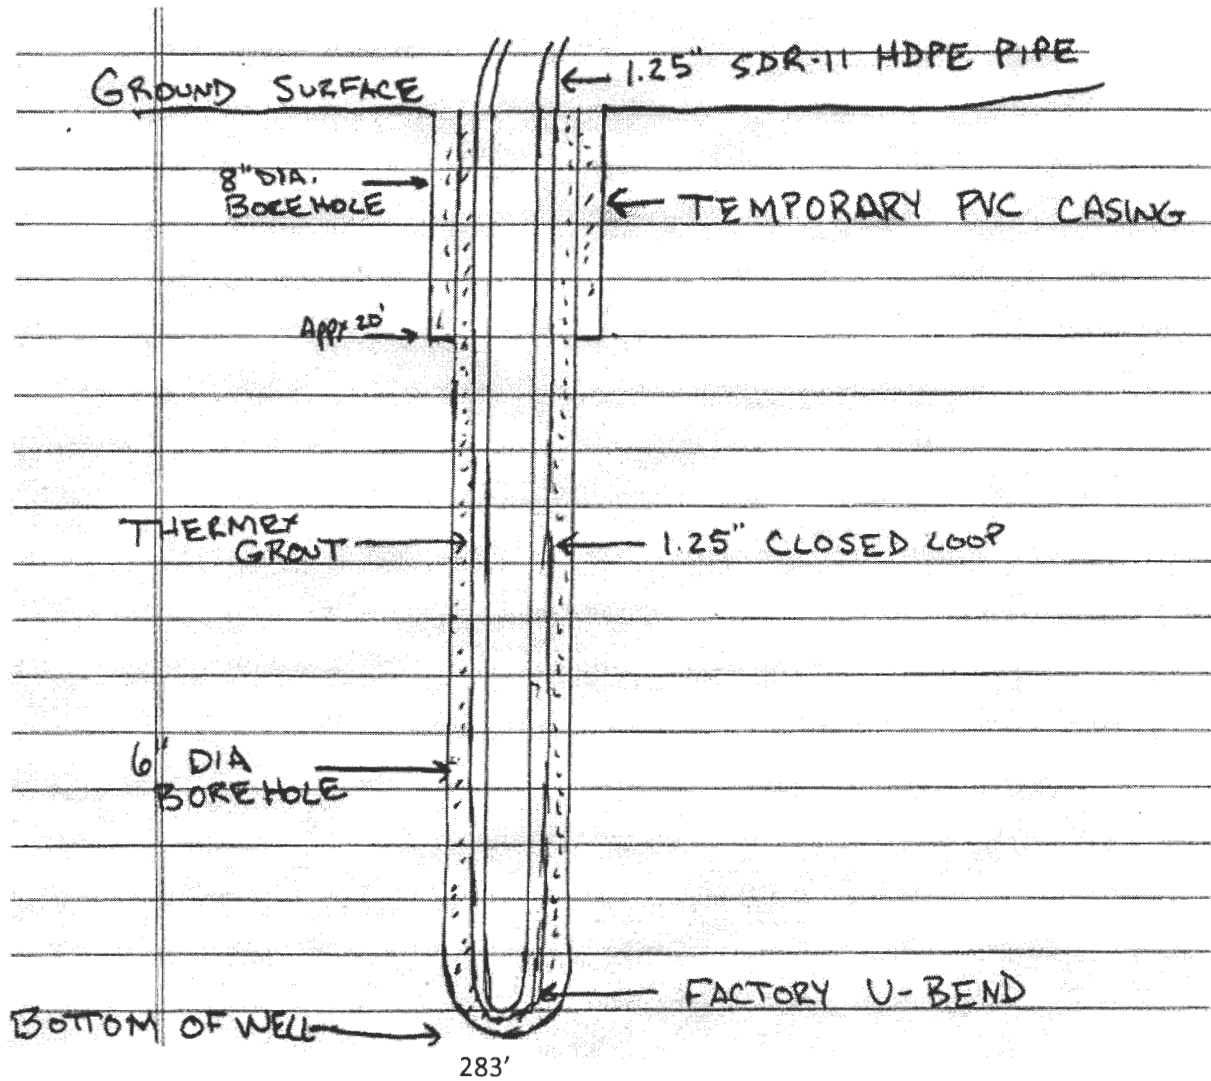 1.25" SDR-11 HDPE PIPE
GROUND SURFACE
8" DIA.
BOREHOLE
TEMPORARY PVC CASING
Appx 20'
THERMEX
GROUT
1.25" CLOSED LOOP
6" DIA
BOREHOLE
FACTORY U-BEND
BOTTOM OF WELL
283'